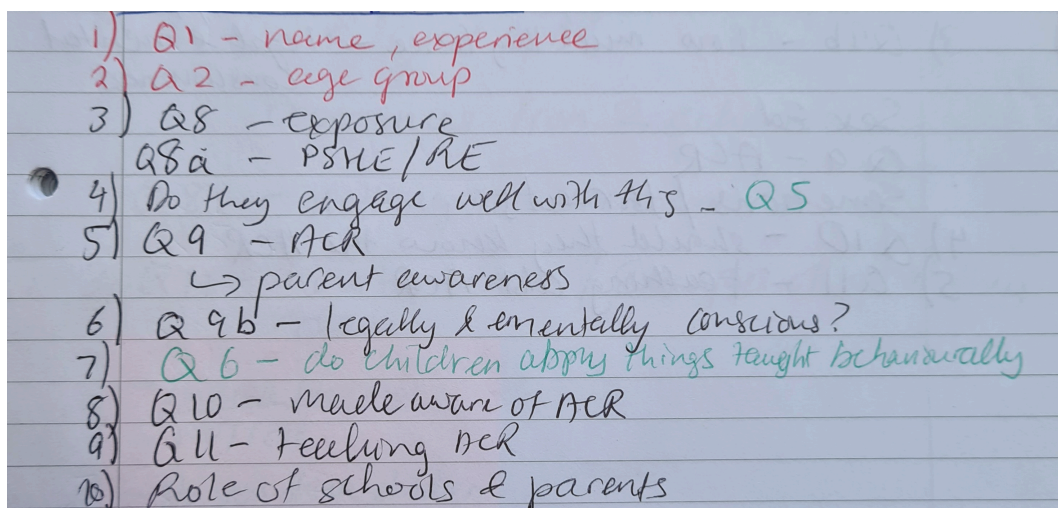 1) Q1 - name, experience
2) Q2 - age group
3) Q8 - exposure
Q8a - PSHE/RE
4) Do they engage well with this - Q5
5) Q9 - ACR
↳ parent awareness
6) Q9b - legally & ementally conscious?
7) Q6 - do children apply things taught behaviourally
8) Q10 - made aware of ACR
9) Q11 - teaching ACR
10) Role of schools & parents